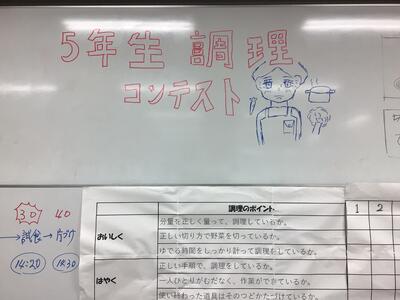 5年生 調理
コンテスト
30 40
→試食→片づけ
14:20 14:30
調理のポイント
1 2
おいしく
分量を正しく量って、調理しているか。
正しい切り方で野菜を切っているか。
ゆでる時間をしっかり計って調理をしているか。
はやく
正しい手順で、調理をしているか。
一人ひとりがむだなく、作業ができているか。
使い終わった道具はそのつどかたづけているか。